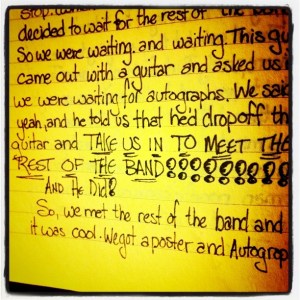 stop.
decided to wait for the rest of the
So we were waiting. and waiting. This gu
came out with a guitar and asked us i
we were waiting for autographs. We said
yeah, and he told us that he'd dropoff th
guitar and TAKE US IN TO MEET THE
"REST OF THE BAND!!!!!!!!!!
AND HE DID!
So, we met the rest of the band and
it was cool. We got a poster and Autogrop